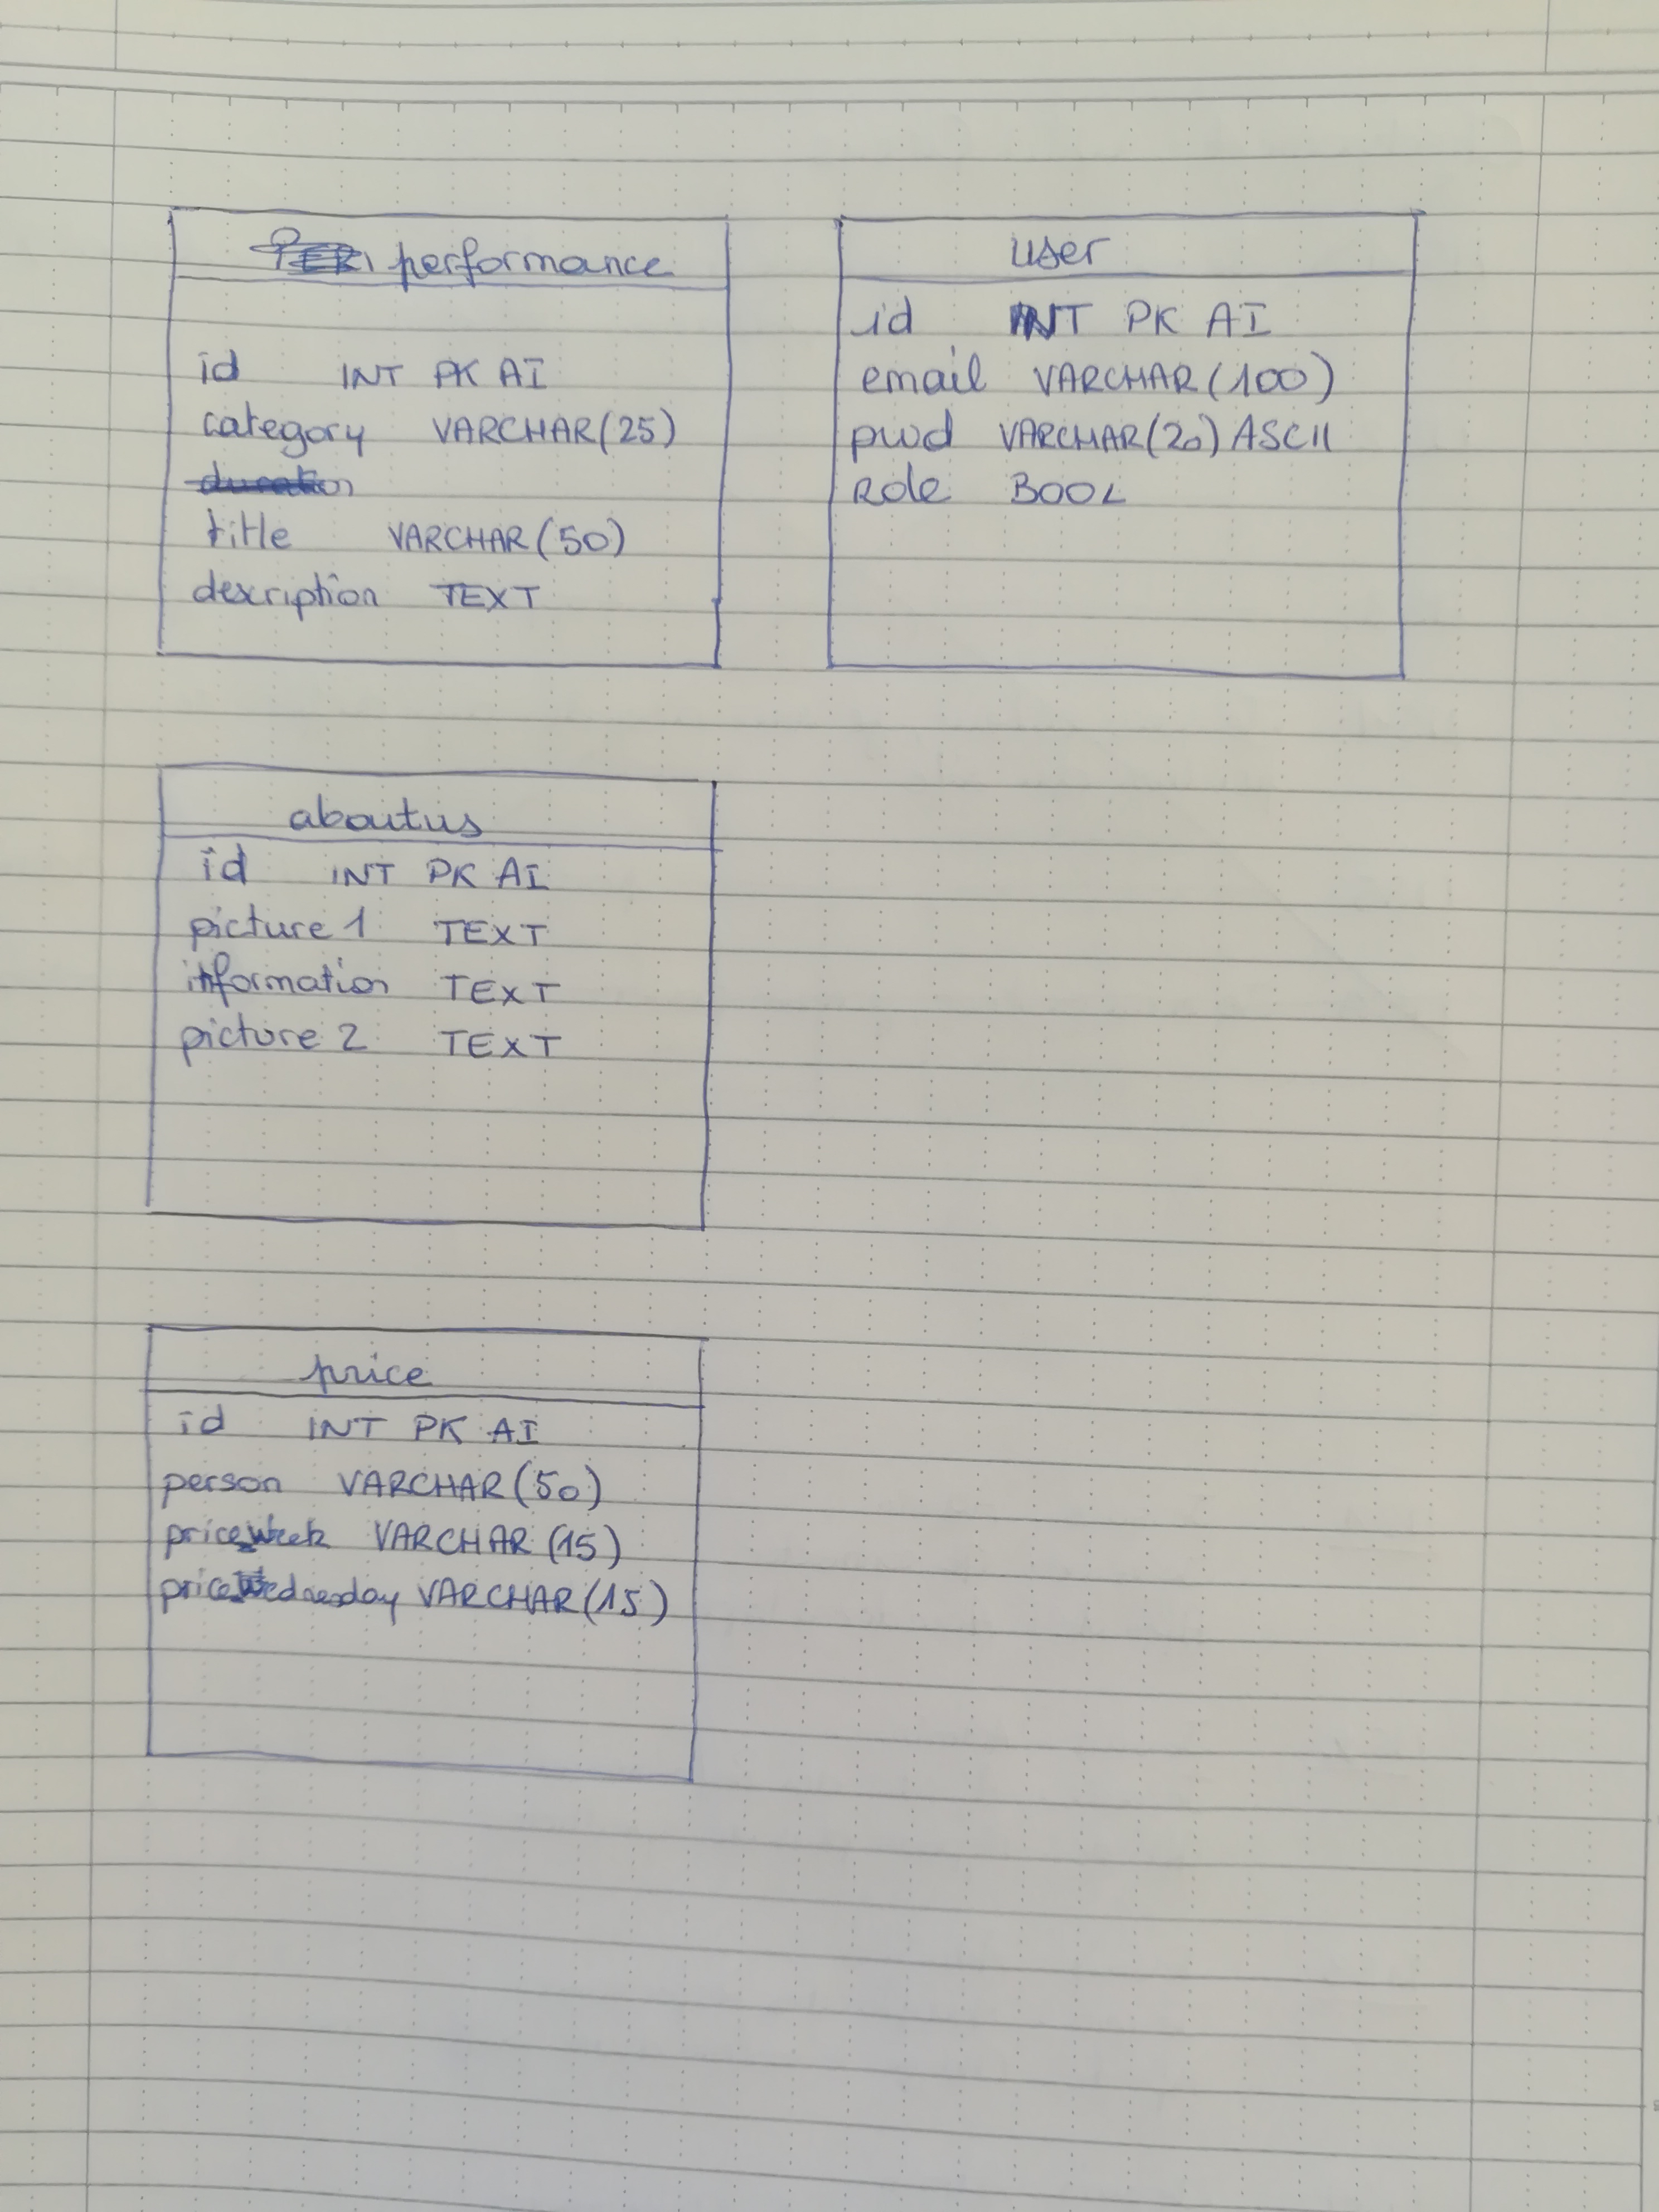 performance
id INT PK AI
category VARCHAR(25)
duration
title VARCHAR(50)
description TEXT
user
id INT PK AI
email VARCHAR(100)
pwd VARCHAR(20) ASCII
role BOOL
aboutus
id INT PK AI
picture 1 TEXT
information TEXT
picture 2 TEXT
price
id INT PK AI
person VARCHAR(50)
price_week VARCHAR(15)
price_wednesday VARCHAR(15)